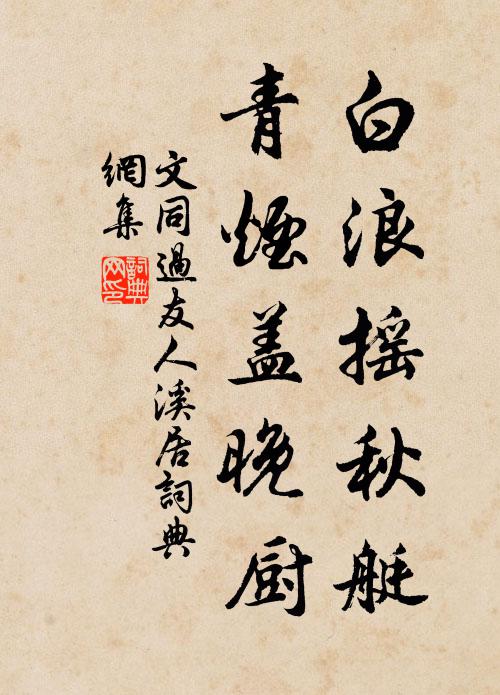 白浪摇秋艇
青煙盖晚厨
文同過友人溪居詞典
網集
詞典
网印